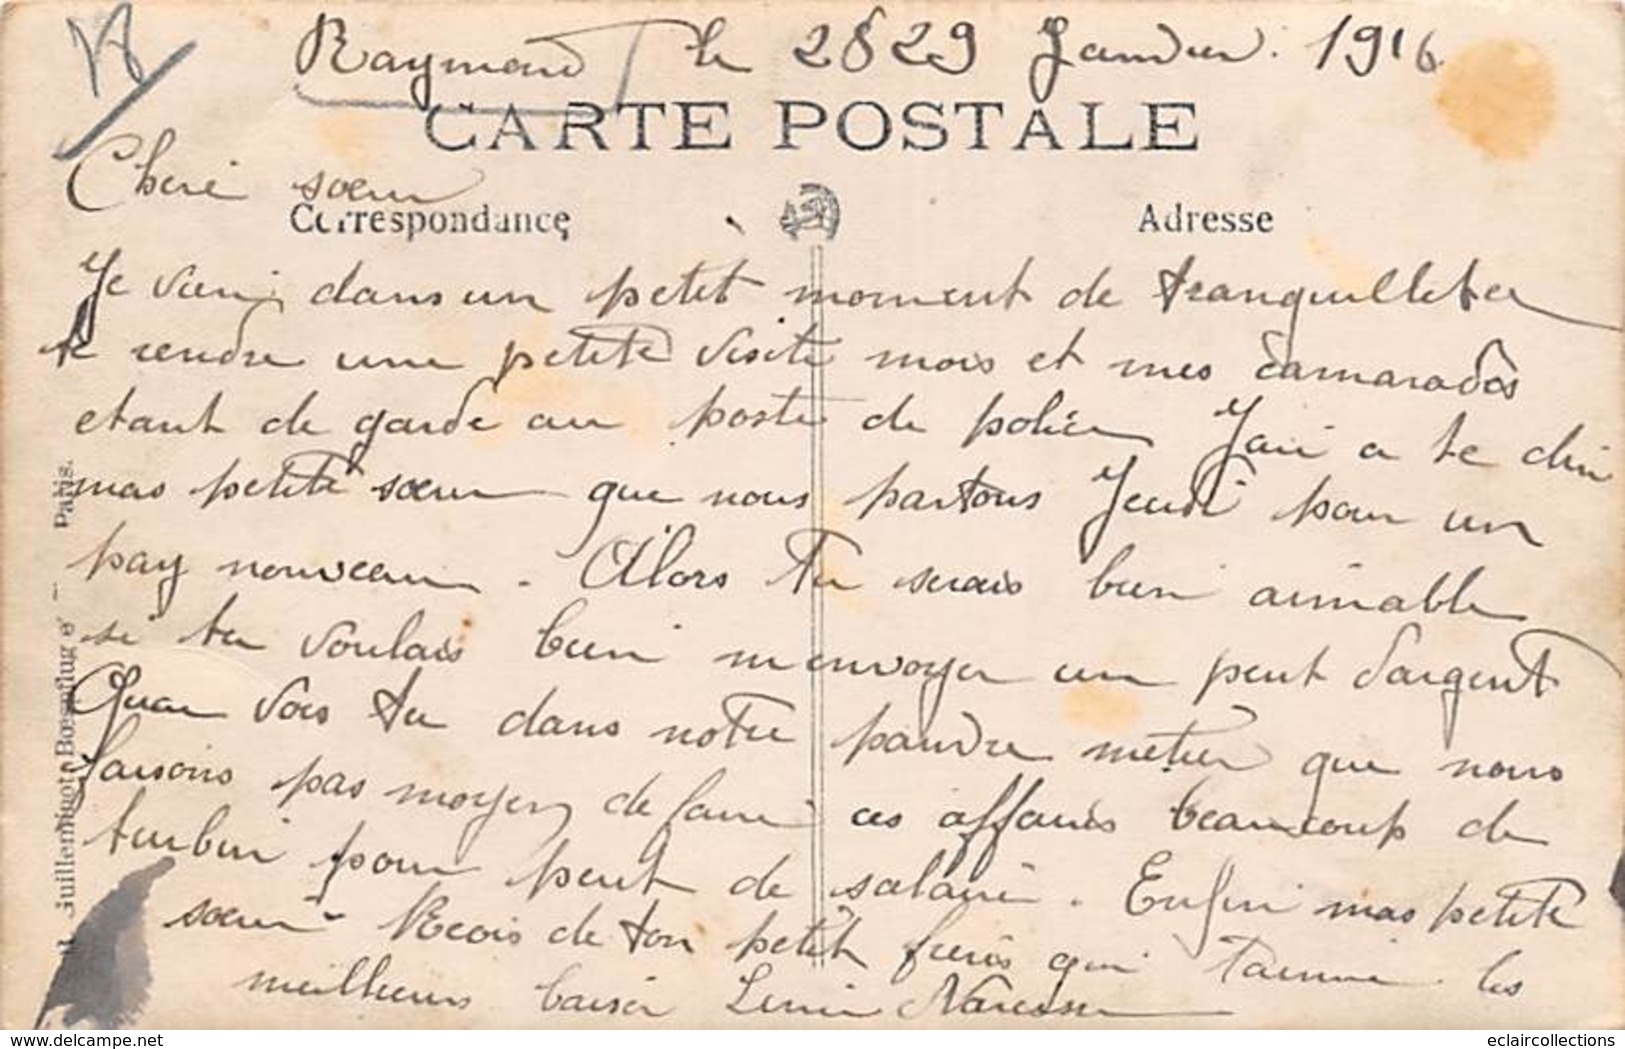 le 28 29 Janvier 1916
CARTE POSTALE
Cheré sœur
Correspondance
Adresse
Je dans un petit moment de tranquilleter
te rendre une petite visite mois et mes camarades
etant de garde au poste de police a te dire
mas petite sœur que nous partons Jeudi pour un
pay nouveau. Alors Tu serais bien aimable
si tu voulais bien m'envoyer un peut d'argent
Quar vois tu dans notre métier que nous
faisons pas moyen de faire ces affaires beaucoup de
turbin pour peut de salaire. Enfin mas petite
sœur Recois de ton petit frère qui t'aime les
meilleurs baiser
Guilleminot, Boespflug et Cie — Paris.
eclaircollections
www.delcampe.net